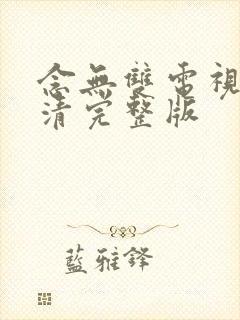 念無雙電視
清完整版
藍雅鋒